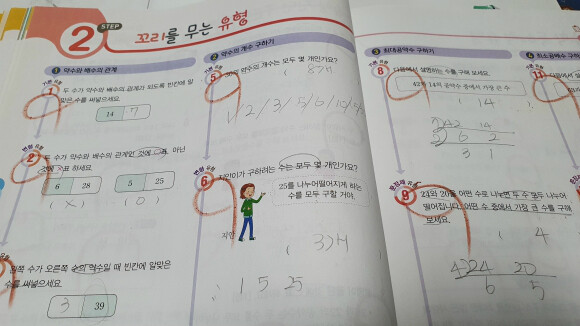 2 STEP 꼬리를 무는 유형
1 약수와 배수의 관계
1
두 수가 약수와 배수의 관계가 되도록 빈칸에 알
맞은 수를 써넣으세요.
14 7
2
두 수가 약수와 배수의 관계인 것에 ○표, 아닌
것에 ×표 하세요.
6 28 5 25
( X ) ( O )
왼쪽 수가 오른쪽 수의 약수일 때 빈칸에 알맞은
수를 써넣으세요.
3 39
2 약수의 개수 구하기
5
30의 약수의 개수는 모두 몇 개인가요?
( 8개
1/2/3/5/6/10/
6
지안이가 구하려는 수는 모두 몇 개인가요?
25를 나누어떨어지게 하는
수를 모두 구할 거야.
지안
( 3개
1 5 25
3 최대공약수 구하기
8
다음에서 설명하는 수를 구해 보세요.
42와 14의 공약수 중에서 가장 큰 수
( 14
7) 42 14
2) 6 2
3 1
9
24와 20을 어떤 수로 나누면 두 수 모두 나누어
떨어집니다. 어떤 수 중에서 가장 큰 수를 구해
보세요.
( 4
4) 24 20
6 5
4 최소공배수 구하
11
다음에서